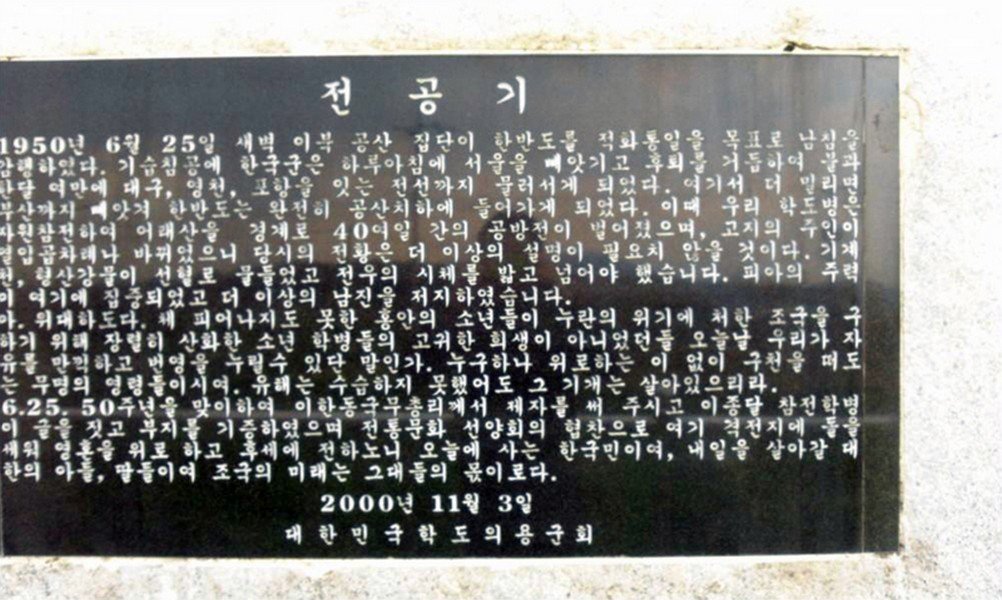 전 공 기
1950년 6월 25일 새벽 이북 공산 집단이 한반도를 적화통일을 목표로 남침을
감행하였다. 기습침공에 한국군은 하루아침에 서울을 빼앗기고 후퇴를 거듭하여 불과
한달 여만에 대구, 영천, 포항을 잇는 전선까지 물러서게 되었다. 여기서 더 밀리면
부산까지 빼앗겨 한반도는 완전히 공산치하에 들어가게 되었다. 이때 우리 학도병은
자원참전하여 어래산을 경계로 40여일 간의 공방전이 벌어졌으며, 고지의 주인이
열일곱차례나 바뀌었으니 당시의 전황은 더 이상의 설명이 필요치 않을 것이다. 기계
천, 형산강물이 선혈로 물들었고 전우의 시체를 밟고 넘어야 했습니다. 피아의 주력
이 여기에 집중되었고 더 이상의 남진을 저지하였습니다.
아. 위대하도다. 채 피어나지도 못한 홍안의 소년들이 누란의 위기에 처한 조국을 구
하기 위해 장렬히 산화한 소년 학병들의 고귀한 희생이 아니었던들 오늘날 우리가 자
유를 만끽하고 번영을 누릴수 있단 말인가. 누구하나 위로하는 이 없이 구천을 떠도
는 무명의 영령들이시여. 유해는 수습하지 못했어도 그 기개는 살아있으리라.
6.25. 50주년을 맞이하여 이한동국무총리께서 제자를 써 주시고 이종달 참전학병
이 글을 짓고 부지를 기증하였으며 전통문화 선양회의 협찬으로 여기 격전지에 돌을
세워 영혼을 위로 하고 후세에 전하노니 오늘에 사는 한국민이여, 내일을 살아갈 대
한의 아들, 딸들이여 조국의 미래는 그대들의 몫이로다.
2000년 11월 3일
대한민국학도의용군회